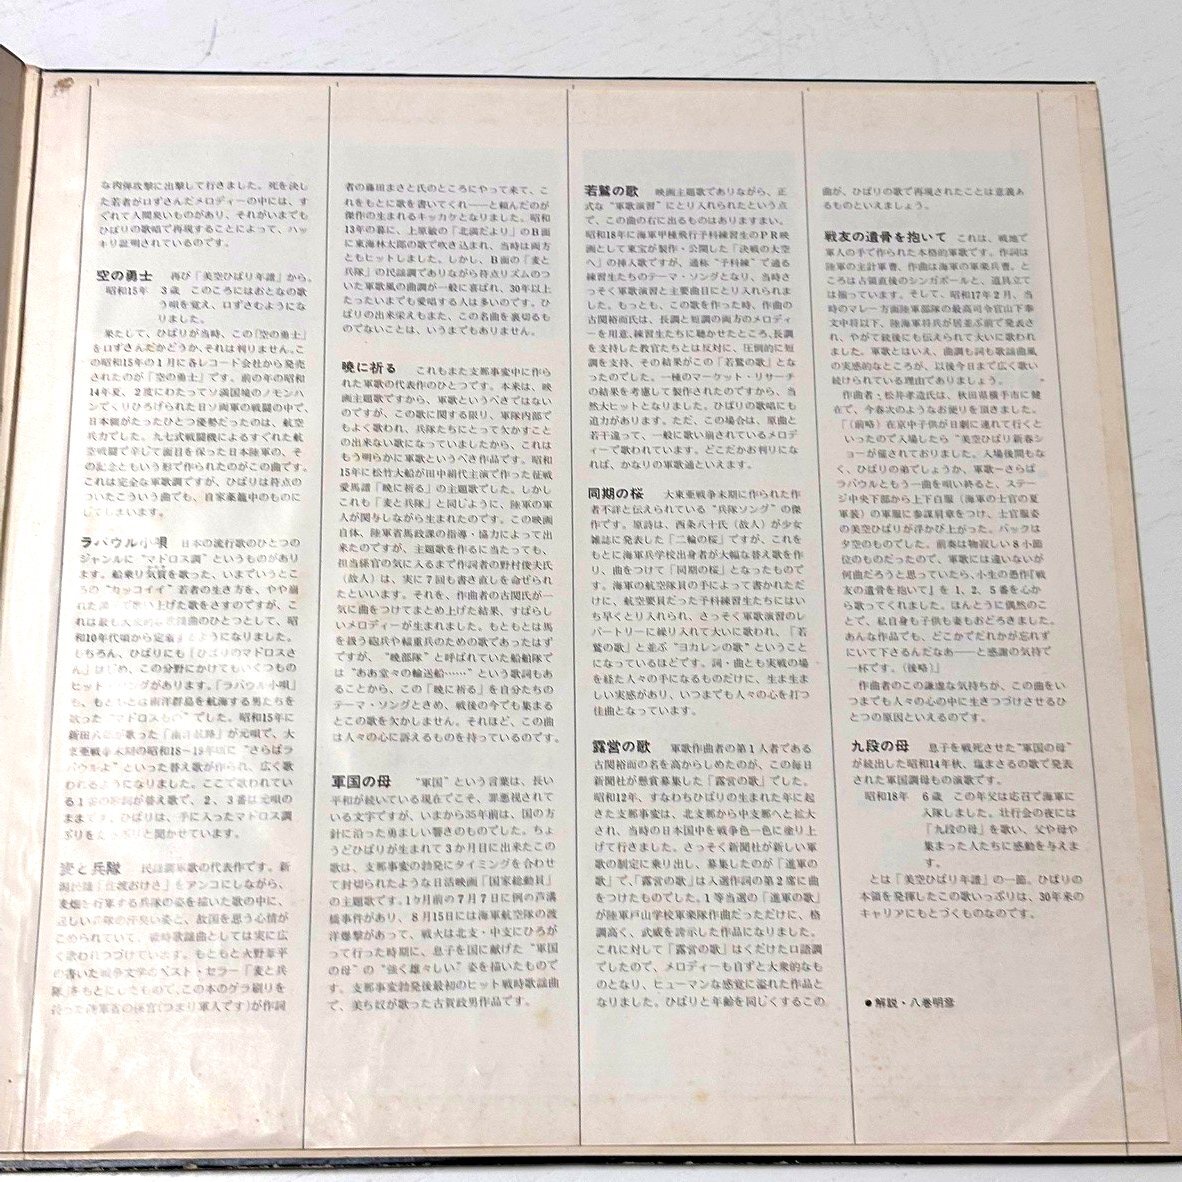 な肉弾攻撃に出撃して行きました。死を決し
た若者が口ずさんだメロディーの中には、す
ぐれて人間臭いものがあり、それがいまでも
ひばりの歌唱で再現することによって、ハッ
キリ証明されているのです。
空の勇士　再び「美空ひばり年譜」から。
昭和15年　3歳　このころにはおとなの歌
う唄を覚え、口ずさむようにな
りました。
果たして、ひばりが当時、この「空の勇士」
を口ずさんだかどうか、それは判りません。こ
の昭和15年の1月に各レコード会社から発売
されたのが「空の勇士」です。前の年の昭和
14年夏、2度にわたってソ満国境のノモンハ
ンでくりひろげられた日ソ両軍の戦闘の中で、
日本側がたったひとつ優勢だったのは、航空
兵力でした。九七式戦闘機によるすぐれた航
空戦闘で辛じて面目を保った日本陸軍の、そ
の記念という形で作られたのがこの曲です。
これは完全な軍歌調ですが、ひばりは持点の
ついたこういう曲でも、自家薬籠中のものに
してしまいます。
ラバウル小唄　日本の流行歌のひとつの
ジャンルに“マドロス調”というものがあり
ます。船乗り気質を歌った、いまでいうとこ
ろの“カッコイイ”若者の生き方を、やや崩
れた調子で歌い上げた歌をさすのですが、こ
れは最も大衆的な歌謡曲のひとつとして、昭
和10年代頃から定着するようになりました。
もちろん、ひばりにも「ひばりのマドロスさ
ん」はじめ、この分野にかけてもいくつもの
ヒット・ソングがあります。「ラバウル小唄」
も、もともとは南洋群島を航海する男たちを
歌った“マドロスもの”でした。昭和15年に
新田八郎が歌った「南洋航路」が元唄で、大
東亜戦争末期の昭和18〜19年頃に“さらばラ
バウルよ”といった替え歌が作られ、広く歌
われるようになりました。ここで歌われてい
る1番の歌詞が替え歌で、2、3番は元唄の
ままです。ひばりは、手に入ったマドロス調
ぶりをたっぷりと聞かせています。
麦と兵隊　民謡調軍歌の代表作です。新
潟民謡「佐渡おけさ」をアンコにしながら、
麦畑を行軍する兵隊の姿を描いた歌の中に、
逞しい兵隊の汗臭い姿と、故国を思う心情が
こめられていて、戦時歌謡曲としては実に広
く歌われつづけています。もともと火野葦平
の書いた戦争文学のベスト・セラー「麦と兵
隊」をもとにしたもので、この本のゲラ刷りを
持った陸軍省の係官(つまり軍人です)が作詞
者の藤田まさと氏のところにやって来て、こ
れをもとに歌を書いてくれ——と頼んだのが
傑作の生まれるキッカケとなりました。昭和
13年の暮に、上原敏の「北満だより」のB面
に東海林太郎の歌で吹き込まれ、当時は両方
ともヒットしました。しかし、B面の「麦と
兵隊」の民謡調でありながら持点リズムのつ
いた軍歌風の曲調が一般に喜ばれ、30年以上
たったいまでも愛唱する人は多いのです。ひ
ばりの出来栄えもまた、この名曲を裏切るも
のでないことは、いうまでもありません。
暁に祈る　これもまた支那事変中に作ら
れた軍歌の代表作のひとつです。本来は、映
画主題歌ですから、軍歌というべきではない
のですが、この歌に関する限り、軍隊内部で
もよく歌われ、兵隊たちにとって欠かすこと
の出来ない歌になっていましたから、これは
もう明らかに軍歌というべき作品です。昭和
15年に松竹大船が田中絹代主演で作った征戦
愛馬譜「暁に祈る」の主題歌でした。しかし
これも「麦と兵隊」と同じように、陸軍の軍
人が関与しながら生まれたのです。この映画
自体、陸軍省馬政課の指導・協力によって出
来たのですが、主題歌を作るに当たっても、
担当係官の気に入るまで作詞者の野村俊夫氏
（故人）は、実に7回も書き直しを命ぜられ
たといいます。それを、作曲者の古関氏が一
気に曲をつけてまとめ上げた結果、すばらし
いメロディーが生まれました。もともとは馬
を扱う砲兵や輜重兵のための歌であったはず
ですが、“暁部隊”と呼ばれていた船舶隊で
は“ああ堂々の輸送船……”という歌詞もあ
ることから、この「暁に祈る」を自分たちの
テーマ・ソングときめ、戦後の今でも集まる
とこの歌を欠かしません。それほど、この曲
は人々の心に訴えるものを持っているのです。
軍国の母　“軍国”という言葉は、長い
平和が続いている現在でこそ、罪悪視されて
いる文字ですが、いまから35年前は、国の方
針に沿った勇ましい響きのものでした。ちょ
うどひばりが生まれて3か月目に出来たこの
歌は、支那事変の勃発にタイミングを合わせ
て封切られたような日活映画「国家総動員」
の主題歌です。1ケ月前の7月7日に例の芦溝
橋事件があり、8月15日には海軍航空隊の渡
洋爆撃があって、戦火は北支・中支にひろが
って行った時期に、息子を国に献げた“軍国
の母”の“強く雄々しい”姿を描いたもので
す。支那事変勃発後最初のヒット戦時歌謡曲
で、美ち奴が歌った古賀政男作品です。
若鷲の歌　映画主題歌でありながら、正
式な“軍歌演習”にとり入れられたという点
で、この曲の右に出るものはありますまい。
昭和18年に海軍甲種飛行予科練習生のPR映
画として東宝が製作・公開した「決戦の大空
へ」の挿入歌ですが、通称“予科練”で通る
練習生たちのテーマ・ソングとなり、当時さ
っそく軍歌演習の主要曲目にとり入れられま
した。もっとも、この歌を作った時、作曲の
古関裕而氏は、長調と短調の両方のメロディ
ーを用意、練習生たちに聴かせたところ、長調
を支持した教官たちとは反対に、圧倒的に短
調を支持、その結果がこの「若鷲の歌」とな
ったのでした。一種のマーケット・リサーチ
の結果を考慮して製作されたのですから、当
然大ヒットとなりました。ひばりの歌唱にも
迫力があります。ただ、この場合は、原曲と
若干違って、一般に歌い崩されているメロデ
ィーで歌われています。どこだかお判りにな
れば、かなりの軍歌通といえます。
同期の桜　大東亜戦争末期に作られた作
者不詳と伝えられている“兵隊ソング”の傑
作です。原詩は、西条八十氏（故人）が少女
雑誌に発表した「二輪の桜」ですが、これを
もとに海軍兵学校出身者が大幅な替え歌を作
り、曲をつけて「同期の桜」となったもので
す。海軍の航空隊員の手によって書かれただ
けに、航空要員だった予科練習生たちにはい
ち早くとり入れられ、さっそく軍歌演習のレ
パートリーに繰り入れて大いに歌われ、「若
鷲の歌」と並ぶ“ヨカレンの歌”ということ
になっているほどです。詞・曲とも実戦の場
を経た人々の手になるものだけに、生ま生ま
しい実感があり、いつまでも人々の心を打つ
佳曲となっています。
露営の歌　軍歌作曲者の第1人者である
古関裕而の名を高からしめたのが、この毎日
新聞社が懸賞募集した「露営の歌」でした。
昭和12年、すなわちひばりの生まれた年に起
きた支那事変は、北支那から中支那へと拡大
され、当時の日本国中を戦争色一色に塗り上
げて行きました。さっそく新聞社が新しい軍
歌の制定に乗り出し、募集したのが「進軍の
歌」で、「露営の歌」は入選作詞の第2席に曲
をつけたものでした。1等当選の「進軍の歌」
が陸軍戸山学校軍楽隊作曲だっただけに、格
調高く、武威を誇示した作品になりました。
これに対して「露営の歌」はくだけた口語調
でしたので、メロディーも自ずと大衆的なも
のとなり、ヒューマンな感覚に溢れた作品と
なりました。ひばりと年齢を同じくするこの
曲が、ひばりの歌で再現されたことは意義あ
るものといえましょう。
戦友の遺骨を抱いて　これは、戦地で
軍人の手で作られた本格的軍歌です。作詞は
陸軍の主計軍曹、作曲は海軍の軍楽兵曹、と
ころは占領直後のシンガポールと、道具立て
は揃っています。そして、昭和17年2月、当
時のマレー方面陸軍部隊の最高司令官山下奉
文中将以下、陸海軍将兵が居並ぶ前で発表さ
れ、やがて銃後にも伝えられて大いに歌われ
ました。軍歌とはいえ、曲調も詞も歌謡曲風
の実感的なところが、以後今日まで広く歌い
続けられている理由でありましょう。
作曲者・松井孝造氏は、秋田県横手市に健
在で、今春次のようなお便りを頂きました。
「（前略）在京中子供が日劇に連れて行くと
いったので入場したら“美空ひばり新春シ
ョーが催されておりました。入場後間もな
く、ひばりの弟でしょうか、軍歌−さらば
ラバウルともう一曲を唄い終ると、ステー
ジ中央下部から上下白服（海軍の士官の夏
軍装）の軍服に参謀肩章をつけ、士官服姿
の美空ひばりが浮かび上がった。バックは
夕空のものでした。前奏は物寂しい8小節
位のものだったので、軍歌には違いないが
何曲だろうと思っていたら、小生の愚作『戦
友の遺骨を抱いて』を1、2、5番を心か
ら歌ってくれました。ほんとうに偶然のこ
とで、私自身も子供も妻もおどろきました。
あんな作品でも、どこかでだれかが忘れず
にいて下さるんだなあ——と感謝の気持で
一杯です。（後略）」
作曲者のこの謙虚な気持ちが、この曲をい
つまでも人々の心の中に生きつづけさせるひ
とつの原因といえるのです。
九段の母　息子を戦死させた“軍国の母”
が続出した昭和14年秋、塩まさるの歌で発表
された軍国調母もの演歌です。
昭和18年　6歳　この年父は応召で海軍に
入隊しました。壮行会の夜には
「九段の母」を歌い、父や母や
集まった人たちに感動を与えま
す。
とは「美空ひばり年譜」の一節。ひばりの
本領を発揮したこの歌いっぷりは、30年来の
キャリアにもとづくものなのです。
●解説・八巻明彦